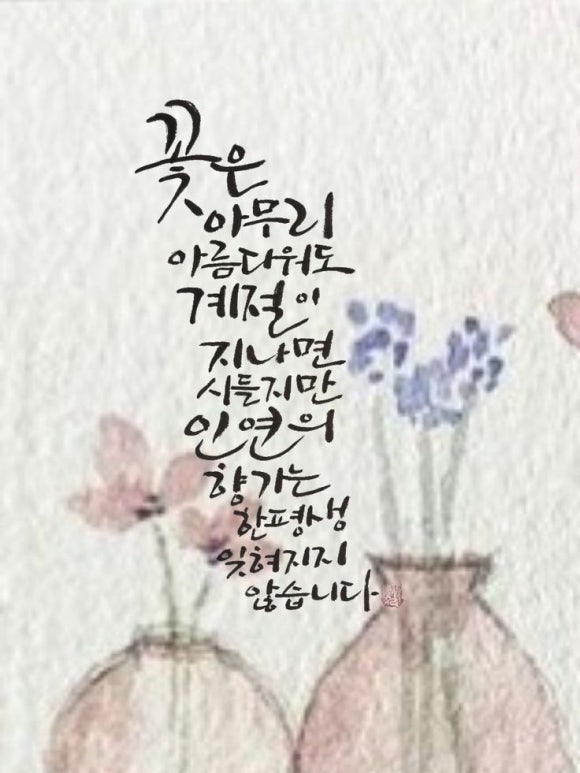 꽃은
아무리
아름다워도
계절이
지나면
시들지만
인연의
향기는
한평생
잊혀지지
않습니다